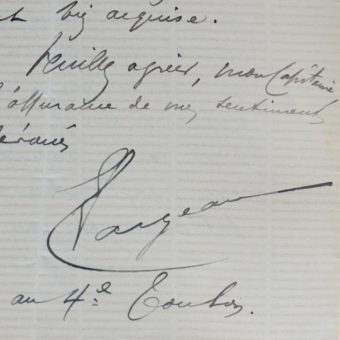 bien acquise.
Veuillez agréer, mon Capitaine
l'assurance de mes sentiments
dévoués
Largeau
au 4e Toulon.